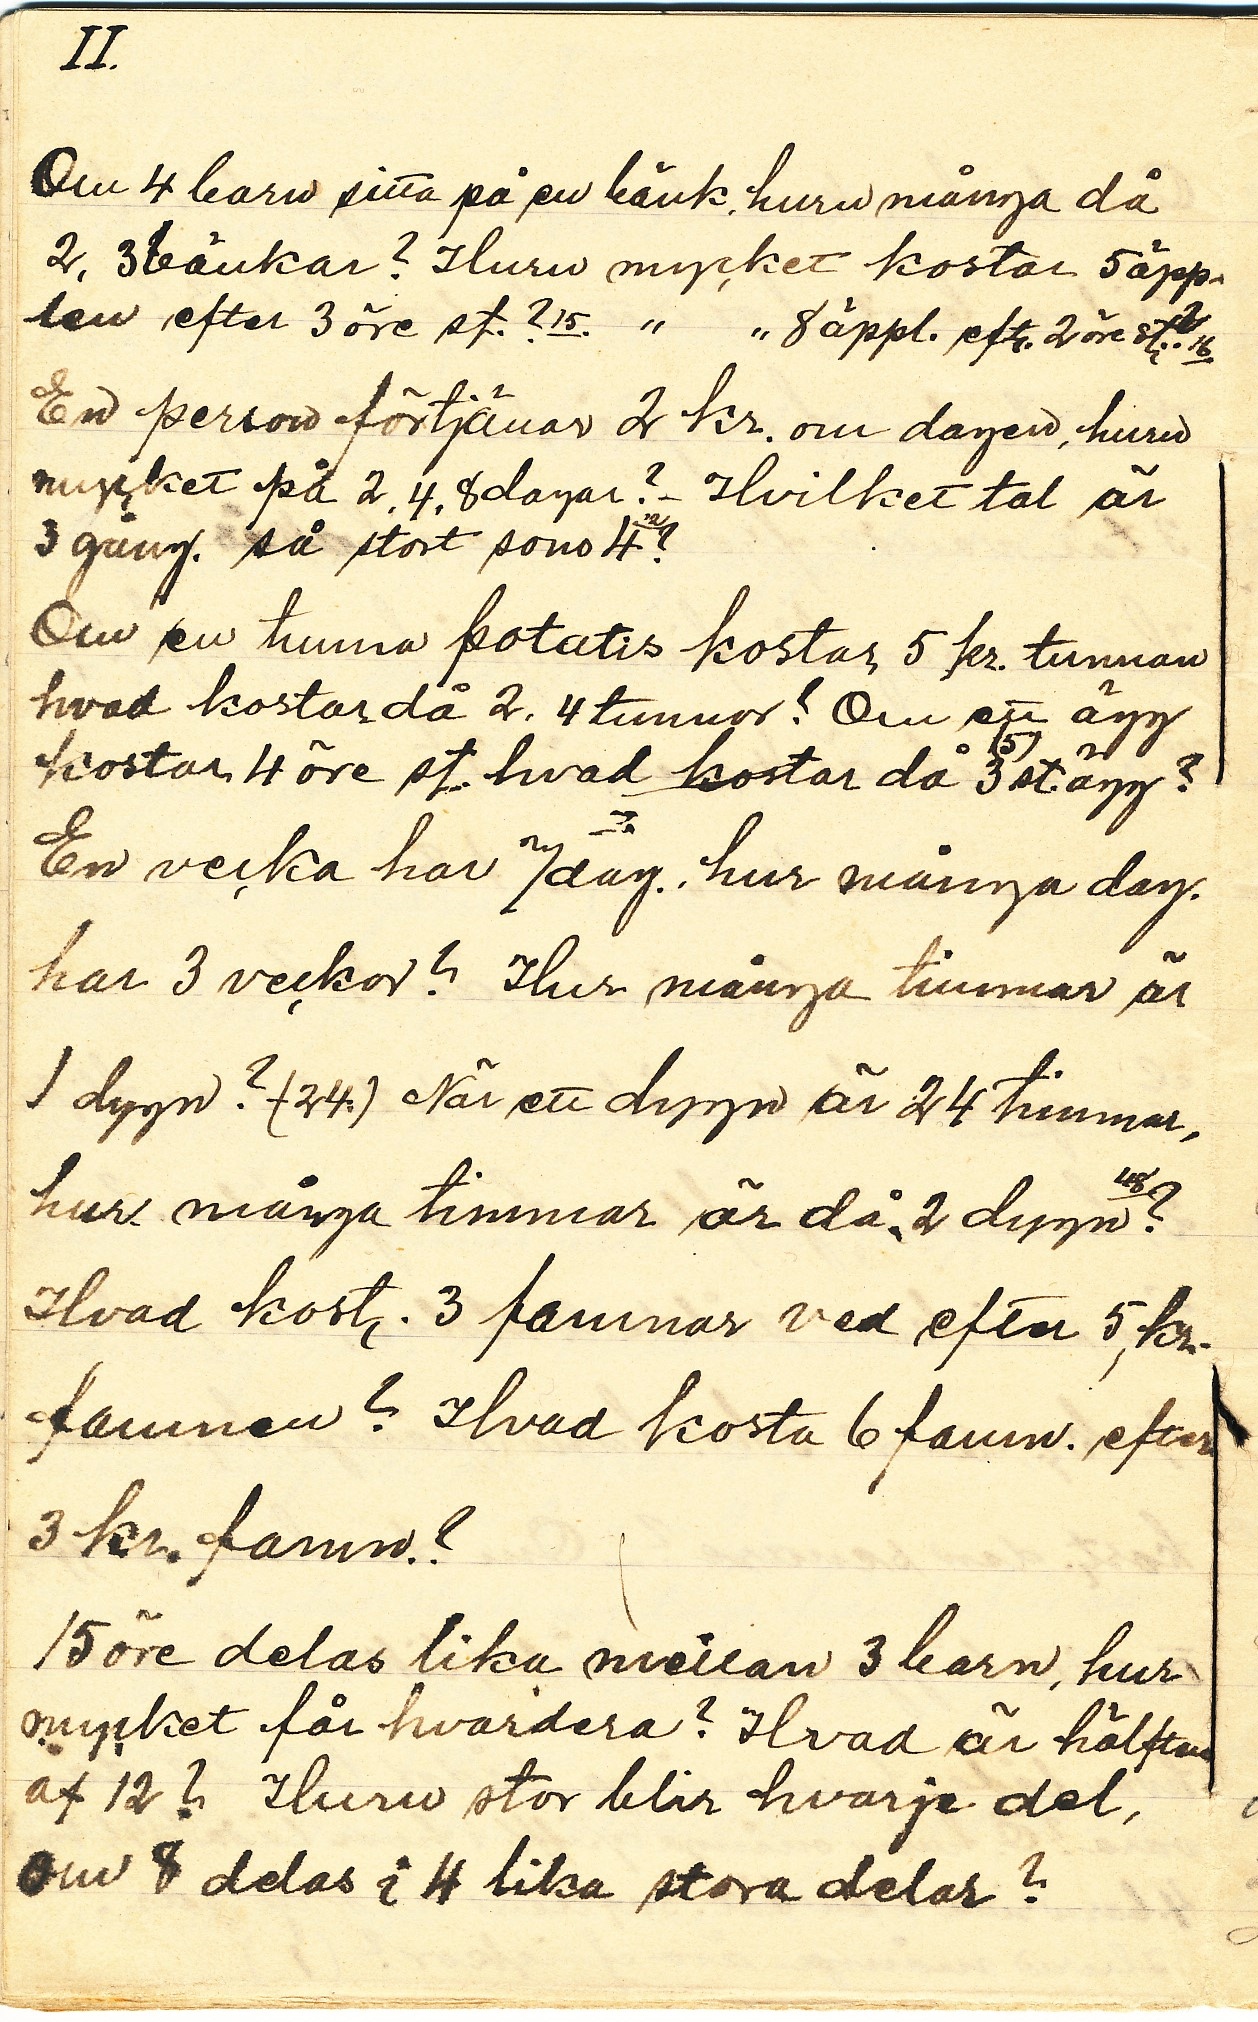 II.
Om 4 barn sitta på en bänk, huru många då
2, 3 bänkar? Huru mycket kostar 5 äpp-
len efter 3 öre st.? 15. " " 8 äppl. eft. 2 öre st.? 16
En person förtjänar 2 kr. om dagen, huru
mycket på 2, 4, 8 dagar? - Hvilket tal är
3 gång. så stort som 4? 12
Om en tunna potatis kostar 5 kr. tunnan
hvad kostar då 2. 4 tunnor? Om ett ägg
kostar 4 öre st. hvad kostar då 3 (5) st. ägg?
En vecka har 7 dag., hur många dag.
har 3 veckor? Hur många timmar är
1 dygn? (24.) När ett dygn är 24 timmar,
hur många timmar är då 2 dygn? 48
Hvad kost. 3 famnar ved efter 5 kr.
famnen? Hvad kosta 6 famn. efter
3 kr. famn.?
15 öre delas lika mellan 3 barn, hur
mycket får hvardera? Hvad är hälften
af 12? Huru stor blir hvarje del,
om 8 delas i 4 lika stora delar?